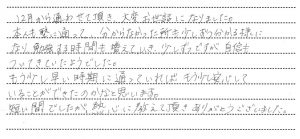 12月から通わせて頂き、大変お世話になりました。
本人も塾に通って、分からなかった所も少しずつ分かる様に
なり勉強する時間も増えていき、少しずつですが自信も
ついてきていたようでした。
もう少し早い時期に通っていれば、もう少し安心して
いることができたのかなと思います。
短い間でしたが、熱心に教えて頂きありがとうございました。